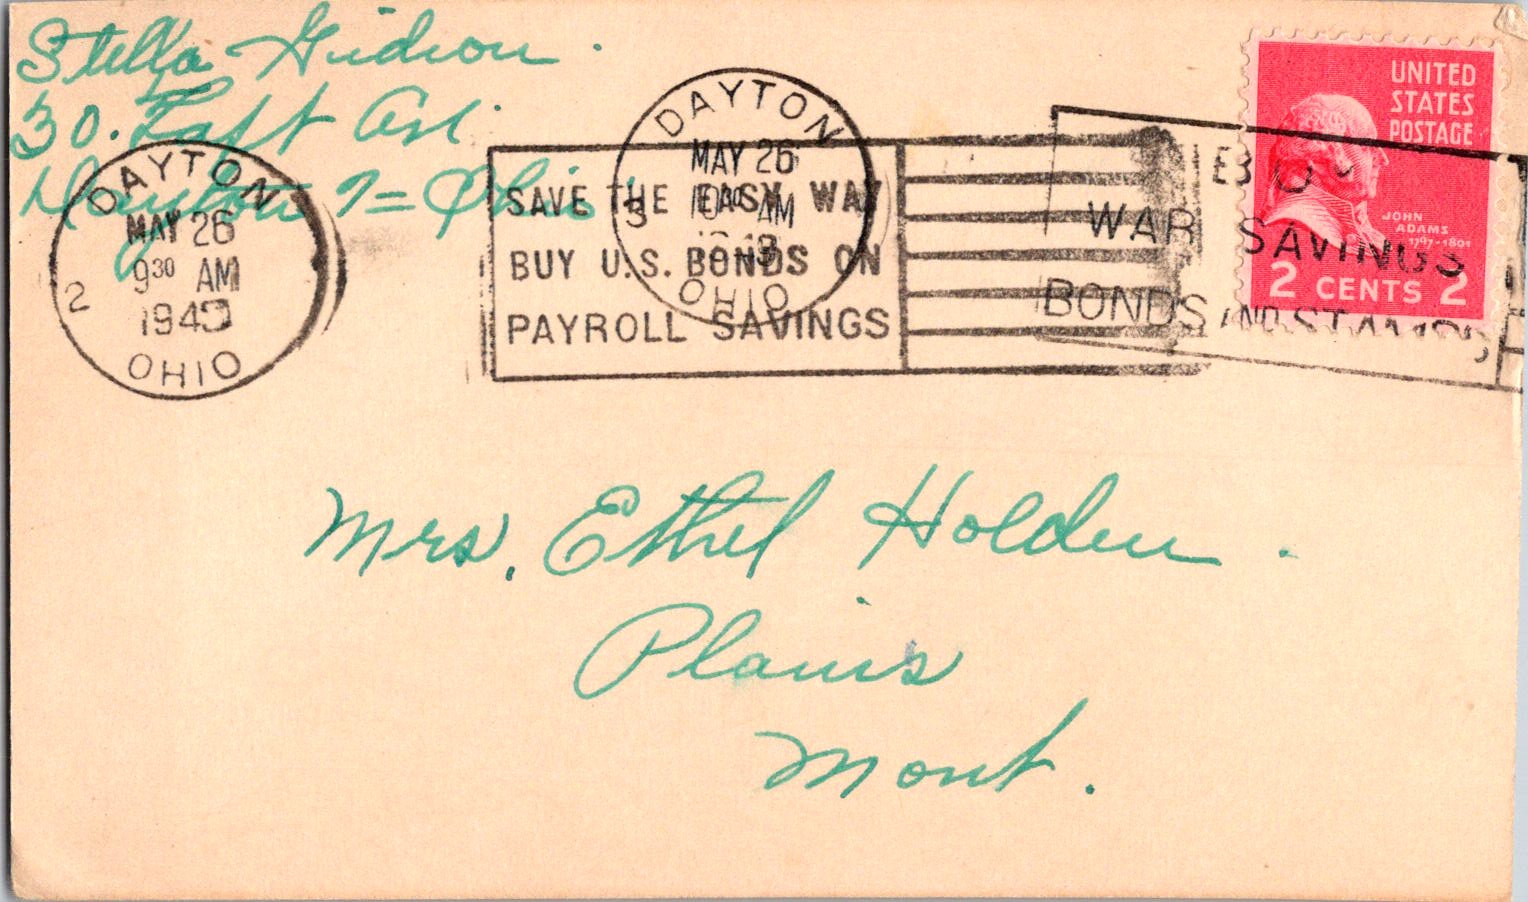 Stella Gideon.
30. Taft Ave.
Dayton 7= Ohio
DAYTON
MAY 26
9 30 AM
1943
2
OHIO
DAYTON
MAY 26
10 30 AM
1943
3
OHIO
SAVE THE EASY WAY
BUY U.S. BONDS ON
PAYROLL SAVINGS
WAR SAVINGS
BONDS AND STAMPS
UNITED
STATES
POSTAGE
JOHN
ADAMS
1797-1801
2 CENTS 2
Mrs. Ethel Holden.
Plains
Mont.